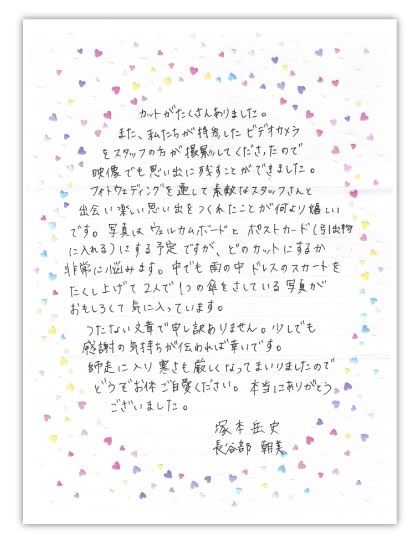 カットがたくさんありました。
また、私たちが持参したビデオカメラ
をスタッフの方が撮影してくださったので
映像でも思い出に残すことができました。
フォトウェディングを通して素敵なスタッフさんと
出会い楽しい思い出をつくれたことが何より嬉しい
です。写真はウェルカムボードとポストカード(引出物
に入れる)にする予定ですが、どのカットにするか
非常に悩みます。中でも雨の中ドレスのスカートを
たくし上げて2人で1つの傘をさしている写真が
おもしろくて気に入っています。
つたない文章で申し訳ありません。少しでも
感謝の気持ちが伝われば幸いです。
師走に入り寒さも厳しくなってまいりましたので
どうぞお体ご自愛ください。本当にありがとう
ございました。
塚本岳史
長谷部 朝美